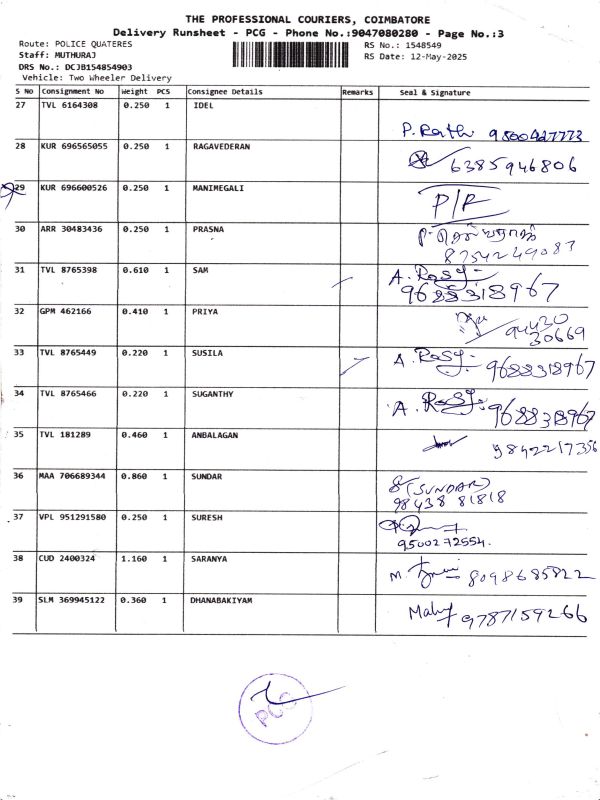 THE PROFESSIONAL COURIERS, COIMBATORE
Delivery Runsheet - PCG - Phone No.:9047080280 - Page No.:3
Route: POLICE QUATERES RS No.: 1548549
Staff: MUTHURAJ RS Date: 12-May-2025
DRS No.: DCJB154854903
Vehicle: Two Wheeler Delivery
S No Consignment No Weight PCS Consignee Details Remarks Seal & Signature
27 TVL 6164308 0.250 1 IDEL
P. Rathi
28 KUR 696565055 0.250 1 RAGAVEDERAN
6385946806
29 KUR 696600526 0.250 1 MANIMEGALI
P/R
30 ARR 30483436 0.250 1 PRASNA
8754249087
31 TVL 8765398 0.610 1 SAM
9688318967
32 GPM 462166 0.410 1 PRIYA
94430
30669
33 TVL 8765449 0.220 1 SUSILA
9688318967
34 TVL 8765466 0.220 1 SUGANTHY
9688318967
35 TVL 181289 0.460 1 ANBALAGAN
9842217356
36 MAA 706689344 0.860 1 SUNDAR
(SUNDAR)
98438 81818
37 VPL 951291580 0.250 1 SURESH
9500272554.
38 CUD 2400324 1.160 1 SARANYA
8098685822
39 SLM 369945122 0.360 1 DHANABAKIYAM
9787159266
PCG